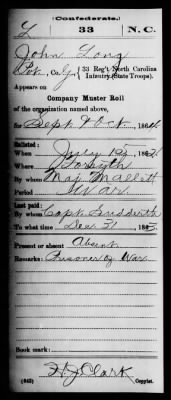 (Confederate.)
L 33 N.C.
John Long
Pvt., Co. G, 33 Reg't North Carolina
Infantry (State Troops).
Appears on
Company Muster Roll
of the organization named above,
for Sept & Oct, 1864.
Enlisted:
When July 15, 1862.
Where Forsyth
By whom Maj Mallett
Period War
Last paid:
By whom Capt.
To what time Dec 31, 1863.
Present or absent Absent
Remarks: Prisoner of War
Book mark:
H J Clark
(642) Copyist.